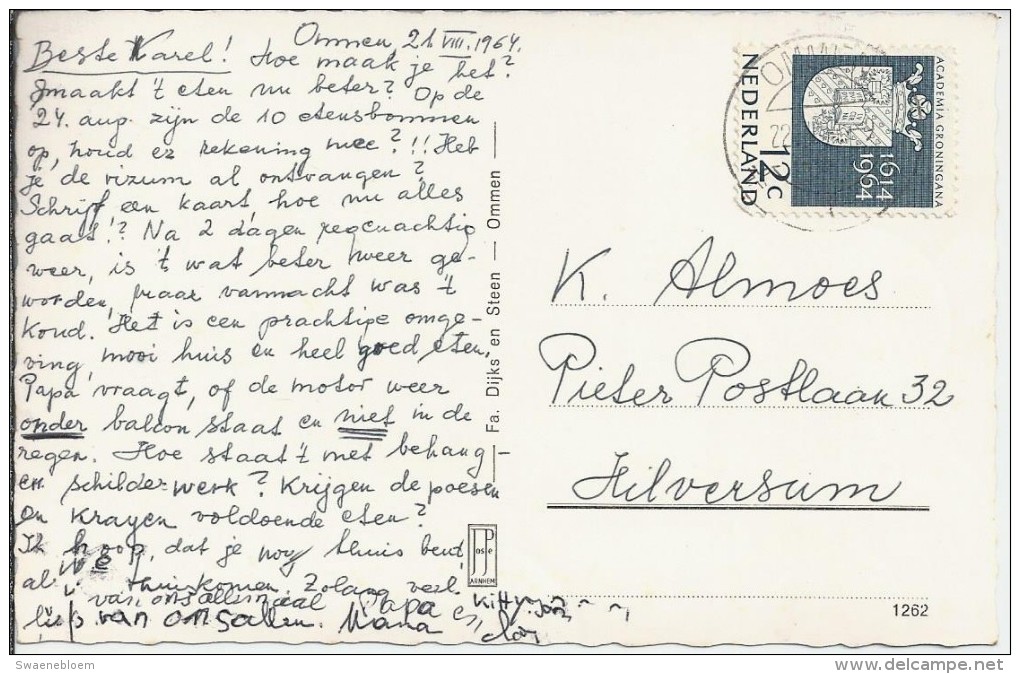 Ommen, 21 VIII. 1964.
Beste Karel! Hoe maak je het?
Smaakt 't eten nu beter? Op de
24. aug. zijn de 10 etensbonnen
op, houd er rekening mee?!! Heb
je de vizum al ontvangen?
Schrijf een kaart hoe nu alles
gaat!? Na 2 dagen regenachtig
weer, is 't wat beter weer ge-
worden, maar vannacht was 't
koud. Het is een prachtige omge-
ving, mooi huis en heel goed eten.
Papa vraagt, of de motor weer
onder balcon staat en niet in de
regen. Hoe staat 't met behang-
en schilder-werk? Krijgen de poesen
en Krayen voldoende eten?
Ik hoop, dat je nog thuis bent,
als we thuiskomen. Zolang veel
liefs van ons allemaal Papa en
van ons allen. Mama
Kitty
Fa. Dijks en Steen — Ommen
JosPe
ARNHEM
NEDERLAND
12c
1614
1964
ACADEMIA GRONINGANA
OMMEN
22
K. Almoes
Pieter Postlaan 32
Hilversum
1262
Swaenebloem
delcampe.net